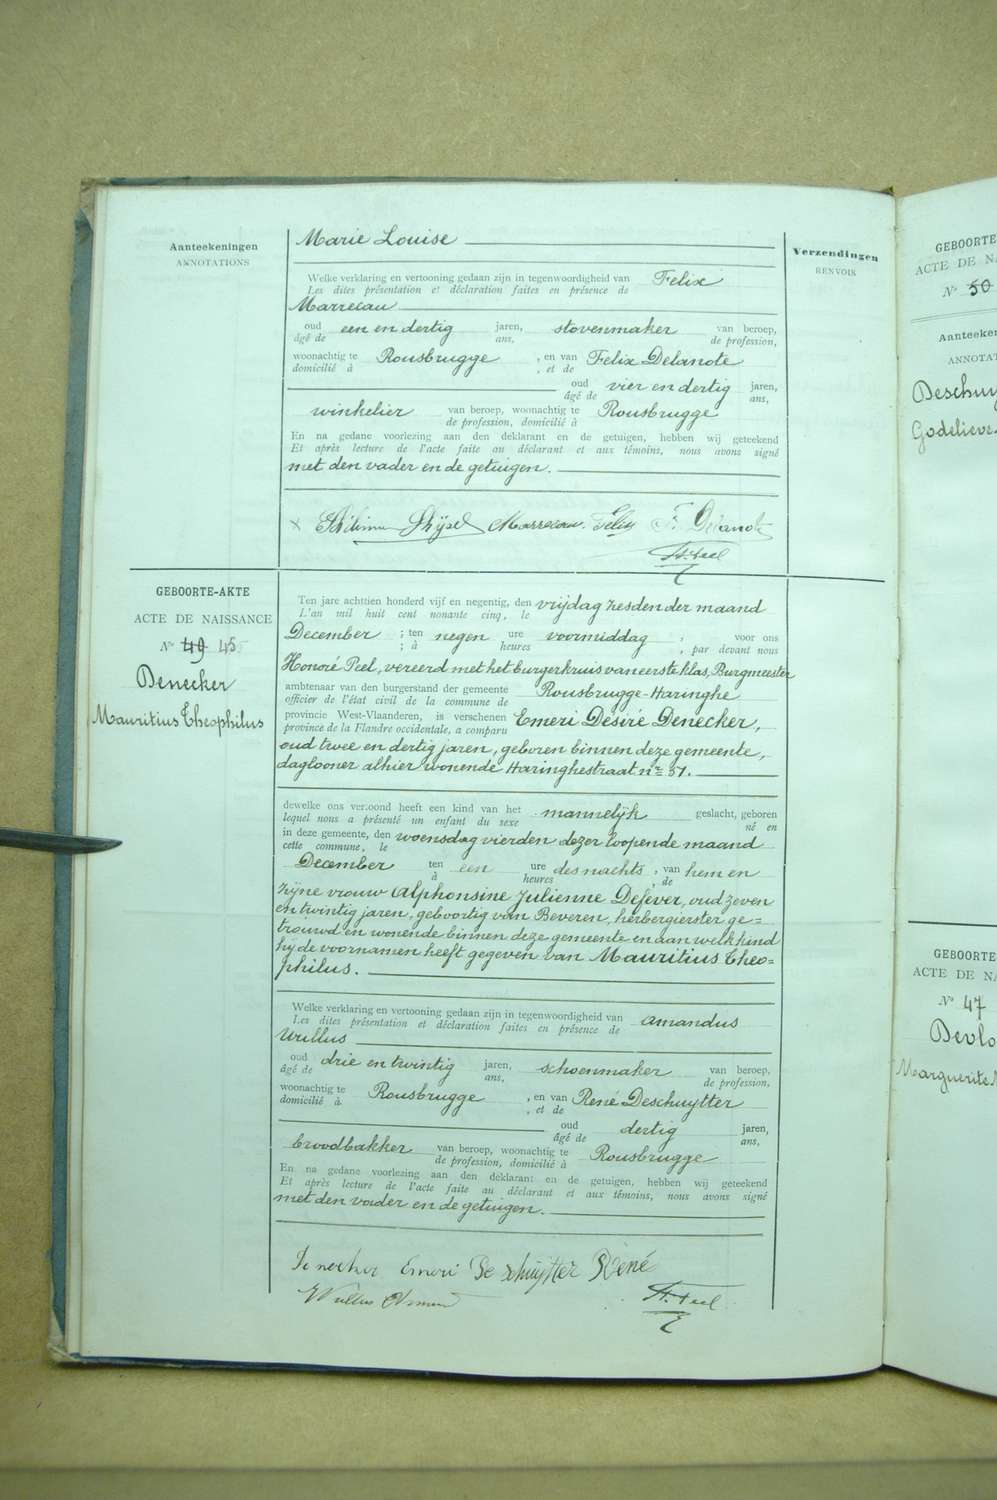 Aanteekeningen
ANNOTATIONS
Verzendingen
RENVOIS
Marie Louise
Welke verklaring en vertooning gedaan zijn in tegenwoordigheid van Felix
Les dites présentation et déclaration faites en présence de
Marrecau
oud een en dertig jaren, stovenmaker van beroep,
âgé de ans, de profession,
woonachtig te Rousbrugge, en van Felix Delanote
domicilié à , et de
oud vier en dertig jaren,
âgé de ans,
winkelier van beroep, woonachtig te Rousbrugge
de profession, domicilié à
En na gedane voorlezing aan den deklarant en de getuigen, hebben wij geteekend
Et après lecture de l'acte faite au déclarant et aux témoins, nous avons signé
met den vader en de getuigen.
Marrecau Felix F. Delanote
H. Peel
GEBOORTE-AKTE
ACTE DE NAISSANCE
N° 49 45
Denecker
Mauritius Theophilus
Ten jare achttien honderd vijf en negentig, den vrijdag zesden der maand
L'an mil huit cent nonante cinq, le
December ; ten negen ure voormiddag , voor ons
; à heures , par devant nous
Honoré Peel, vereerd met het burgerkruis van eerste klas, Burgmeester
ambtenaar van den burgerstand der gemeente Rousbrugge-Haringhe
officier de l'état civil de la commune de
provincie West-Vlaanderen, is verschenen Emeri Désiré Denecker,
province de la Flandre occidentale, a comparu
oud twee en dertig jaren, geboren binnen deze gemeente,
daglooner alhier wonende Haringhestraat nr 51.
dewelke ons vertoond heeft een kind van het mannelijk geslacht, geboren
lequel nous a présenté un enfant du sexe né en
in deze gemeente, den woensdag vierden dezer loopende maand
cette commune, le
December ten een ure des nachts , van hem en
à heures , de
zijne vrouw Alphonsine Julienne Defever, oud zeven
en twintig jaren, geboortig van Beveren, herbergierster ge=
trouwd en wonende binnen deze gemeente en aan welk kind
hij de voornamen heeft gegeven van Mauritius Theo=
philus.
Welke verklaring en vertooning gedaan zijn in tegenwoordigheid van Amandus
Les dites présentation et déclaration faites en présence de
Wullus
oud drie en twintig jaren, schoenmaker van beroep,
âgé de ans, de profession,
woonachtig te Rousbrugge , en van René Deschuytter
domicilié à , et de
oud dertig jaren,
âgé de ans,
broodbakker van beroep, woonachtig te Rousbrugge
de profession, domicilié à
En na gedane voorlezing aan den deklarant en de getuigen, hebben wij geteekend
Et après lecture de l'acte faite au déclarant et aux témoins, nous avons signé
met den vader en de getuigen.
Denecker Emeri Deschuytter René
Wullus Amand H. Peel
GEBOORTE
ACTE DE NA
N° 50
Aanteeken
ANNOTAT
Deschuy
Godelieve
GEBOORTE
ACTE DE NA
N° 47
Devlo
Marguerite